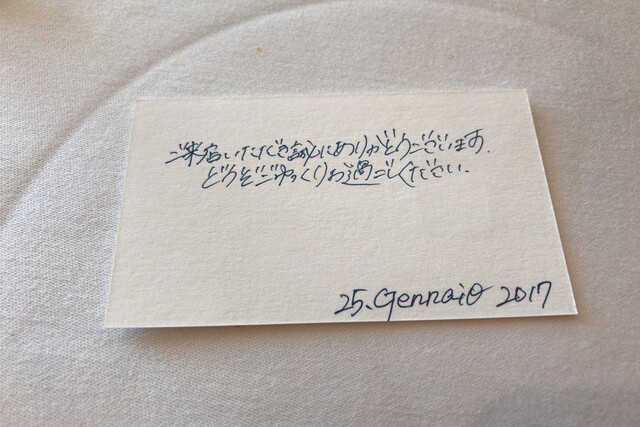 ご来店いただき誠にありがとうございます.
どうぞごゆっくりお過ごしください.
25. Gennaio 2017